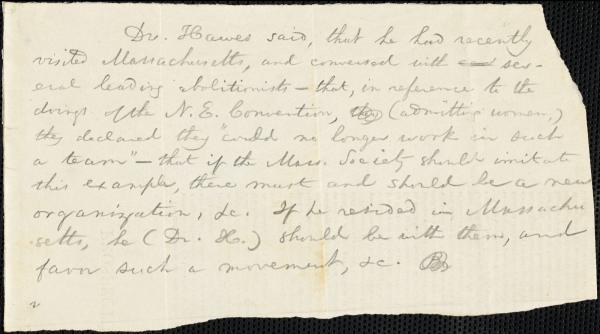 Dr. Hawes said, that he had recently
visited Massachusetts, and conversed with sev-
eral leading abolitionists - that, in reference to the
doings of the N. E. Convention, they (admitting women,)
they declared they "could no longer work in such
a team" - that if the Mass. Society should imitate
this example, there must and should be a new
organization, &c. If he resided in Massachu
setts, he (Dr. H.) should be with them, and
favor such a movement, &c.